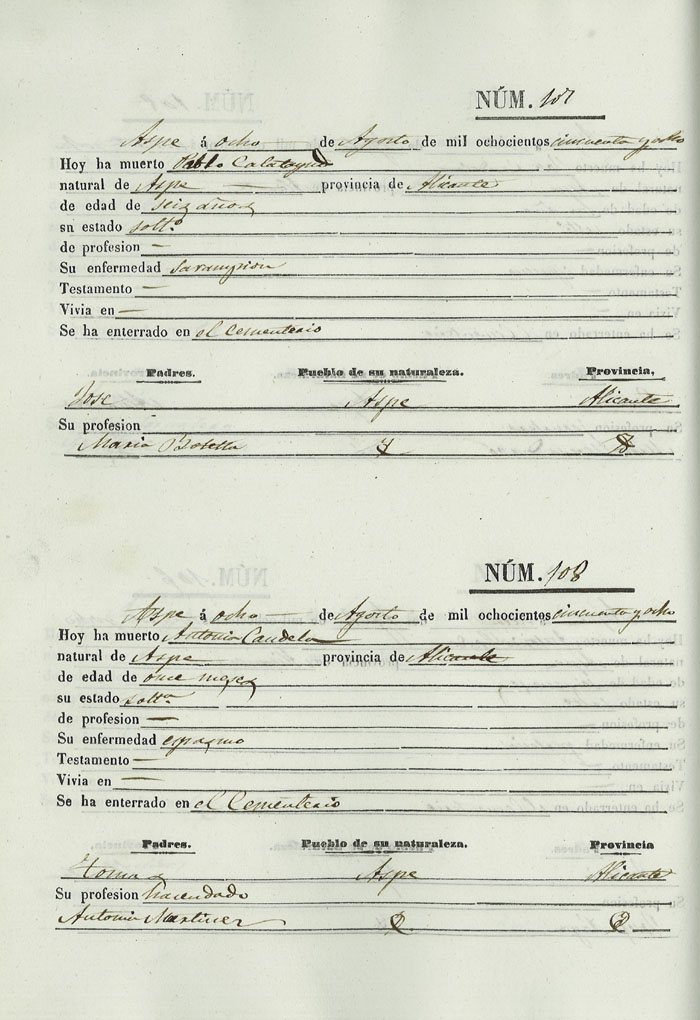 NÚM. 107
Aspe á ocho de Agosto de mil ochocientos cincuenta y ocho
Hoy ha muerto Pablo Calatayud
natural de Aspe — provincia de Alicante
de edad de seiz años
sn estado soltº
de profesion —
Su enfermedad sarampion
Testamento —
Vivia en —
Se ha enterrado en el Cementerio
Padres. Pueblo de su naturaleza. Provincia,
Jose Aspe Alicante
Su profesion
Maria Botella
NÚM. 108
Aspe á ocho — de Agosto de mil ochocientos cincuenta y ocho
Hoy ha muerto Antonia Candela
natural de Aspe — provincia de Alicante
de edad de once meses
su estado soltª
de profesion —
Su enfermedad espasmo
Testamento —
Vivia en —
Se ha enterrado en el Cementerio
Padres. Pueblo de su naturaleza. Provincia
Tomas Aspe Alicante
Su profesion hacendado
Antonia Martinez